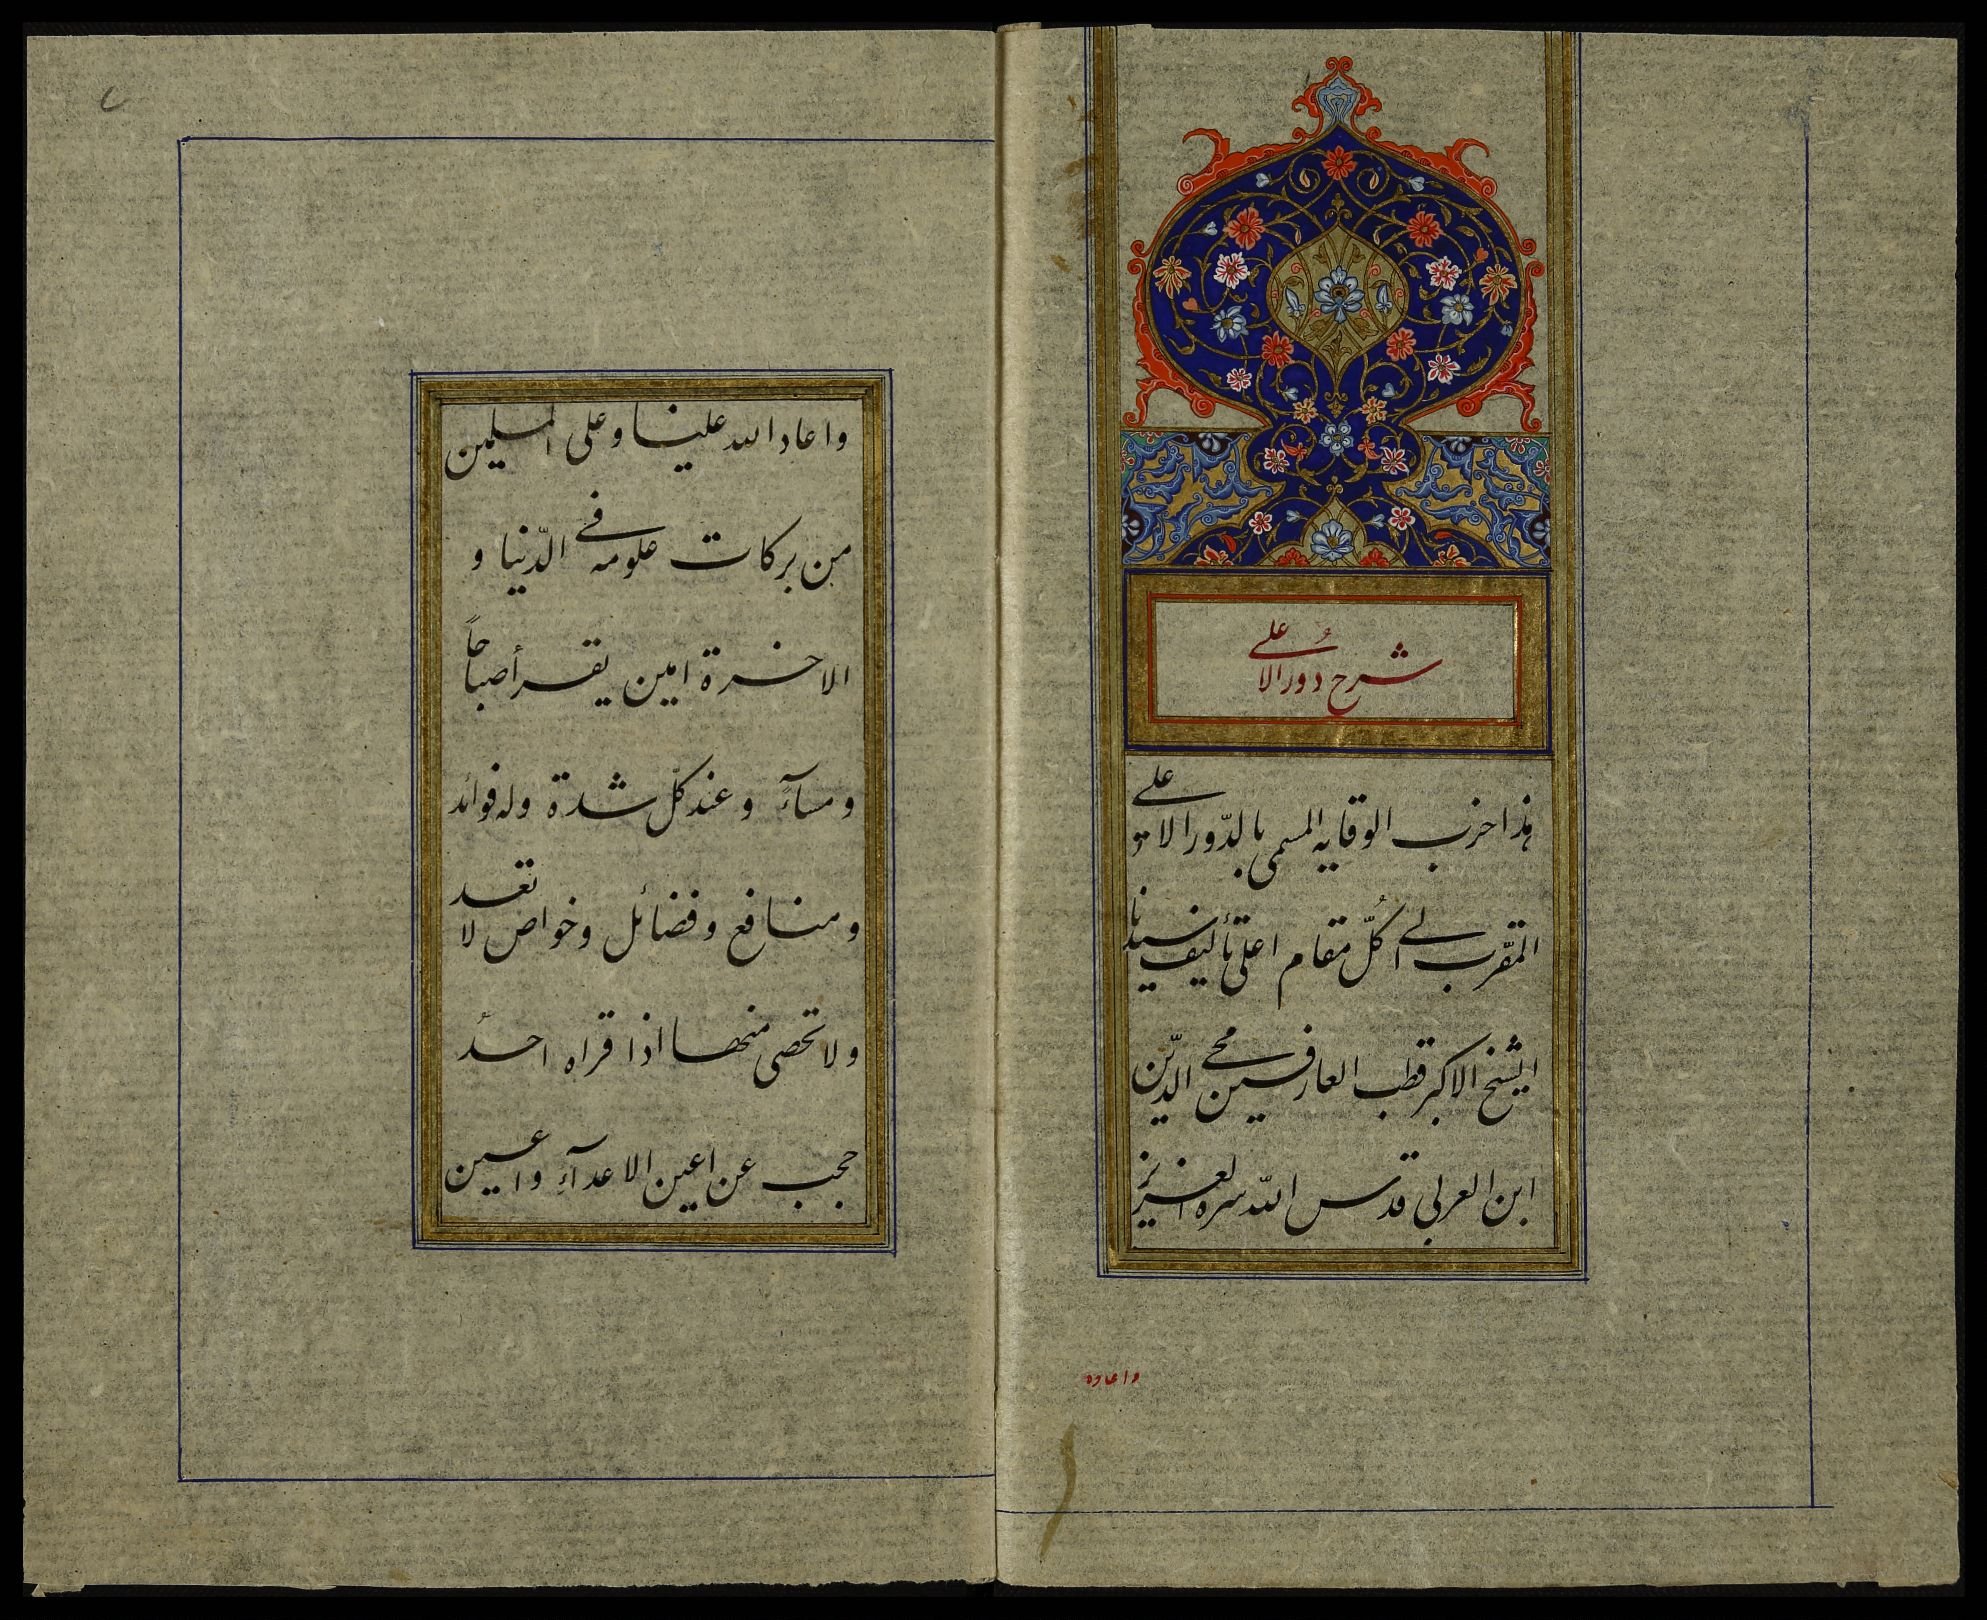 شرح دور الاعلى
هذا حزب الوقايه المسمى بالدّور الاعلى
المقرّب الى كُلّ مقام اعلى تأليف سيدنا
الشيخ الاكبر قطب العارفين محى الدّين
ابن العربى قدس اللّه سره العزيز
واعاده
واعاد الله علينا وعلى المسلمين
من بركات علومه فى الدّنيا و
الاخرة امين يقرأ صباحاً
ومساءً وعند كلّ شدة وله فوائد
ومنافع وفضائل وخواص لا تعد
ولا تحصى منها اذا قراه احدٌ
حجب عن اعين الاعدآءِ واعين